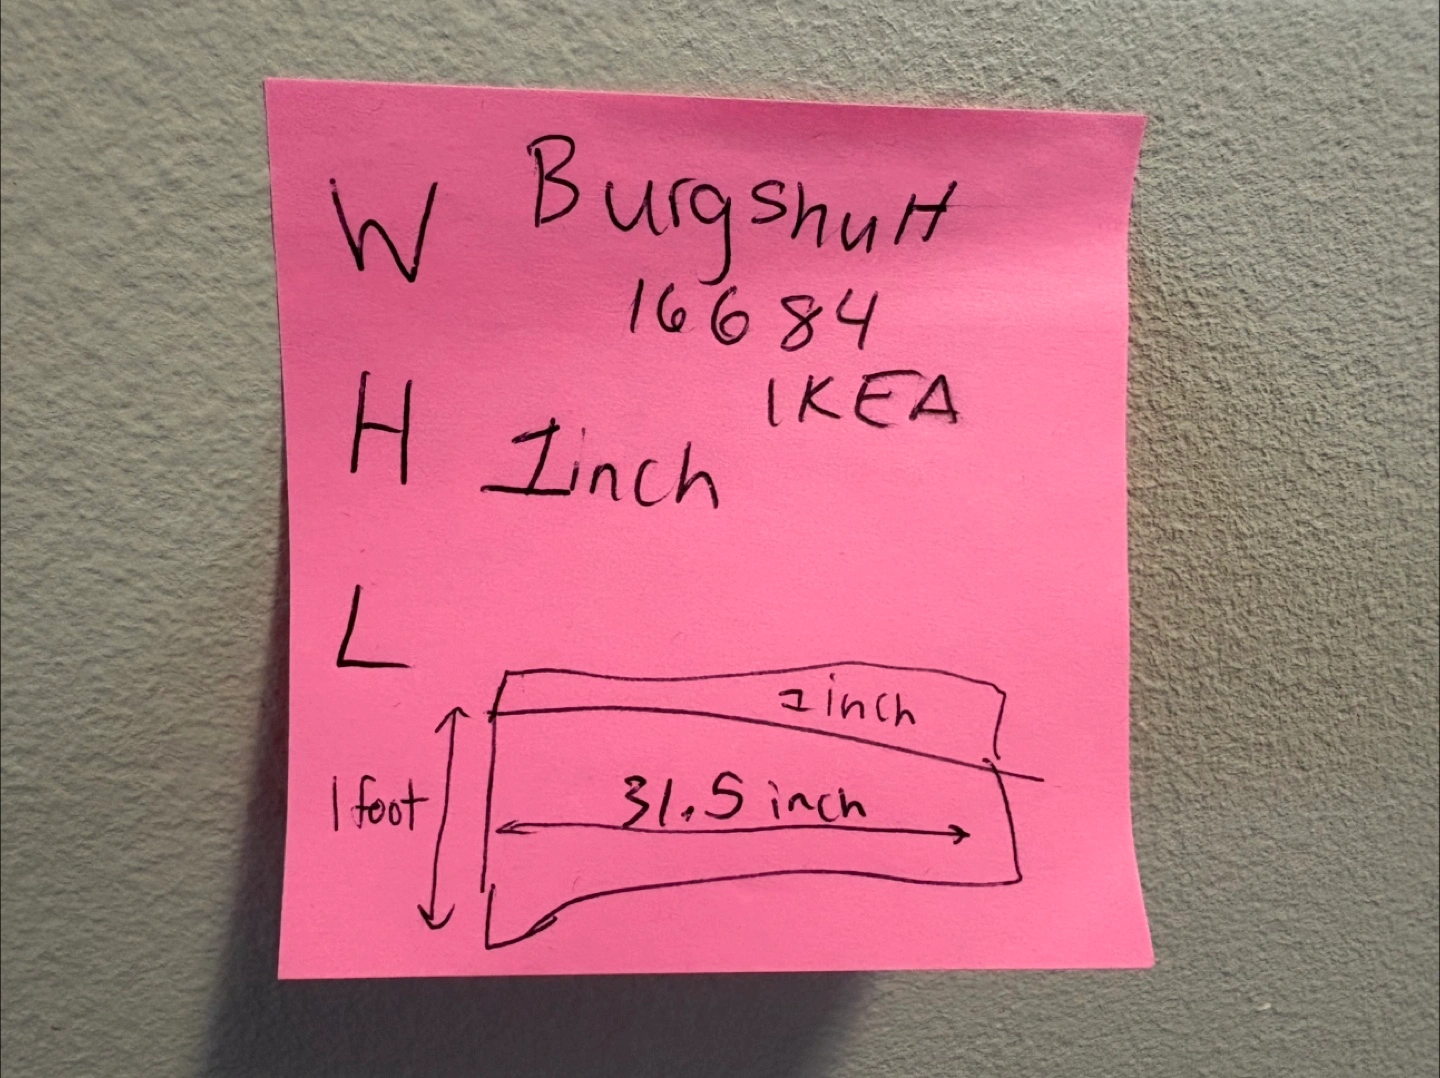 W Burgshutt
16684
IKEA
H 1inch
L
1 inch
1 foot
31.5 inch